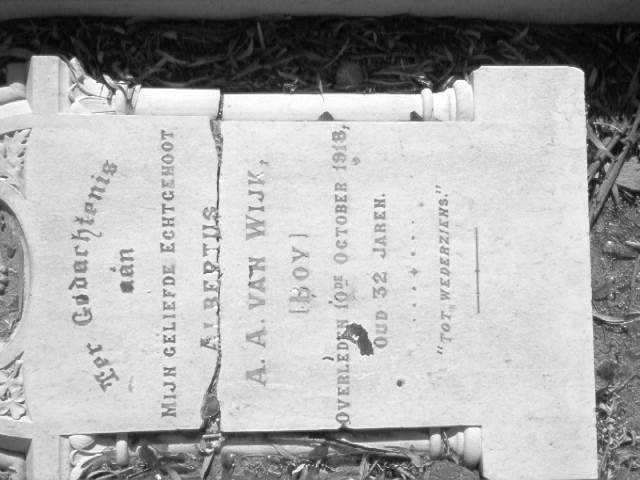 Ter Gedachtenis
aan
MIJN GELIEFDE ECHTGENOOT
ALBERTUS
A. A. VAN WIJK,
(BOY)
OVERLEDEN 10DE OCTOBER 1918,
OUD 32 JAREN.
"TOT WEDERZIENS."